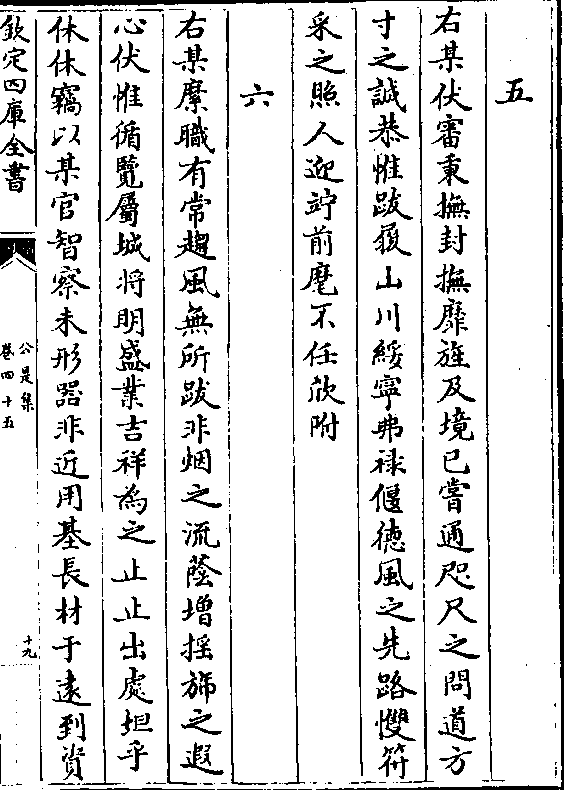 五
右某伏審秉撫封撫靡旌及境已嘗通咫尺之問道方
寸之誠恭惟跋履山川綏寧弗祿偃德風之先路慢符
采之照人迎竚前麾不任欣附
六
右某縻職有常趨風無所跋非烟之流蔭增搖旆之遐
心伏惟循覽屬城将明盛業吉祥為之止止出處坦乎
休休竊以某官智察未形器非近用基長材于遠到資
欽定四庫全書
公是集
卷四十五
十九